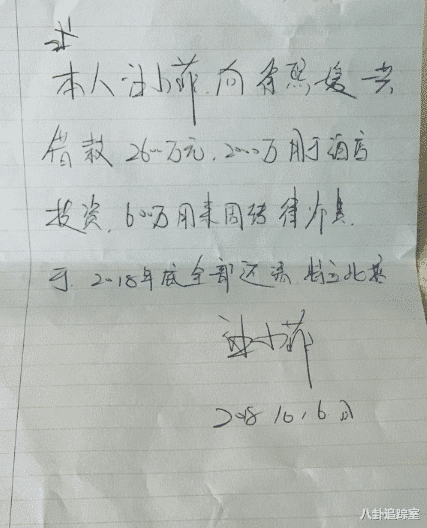 本人汪小菲,向徐熙媛共
借款2600万元,2000万用于酒店
投资,600万用来周转
于2018年底全部还清,特立此据
汪小菲
2018.10.6日
八卦追踪室